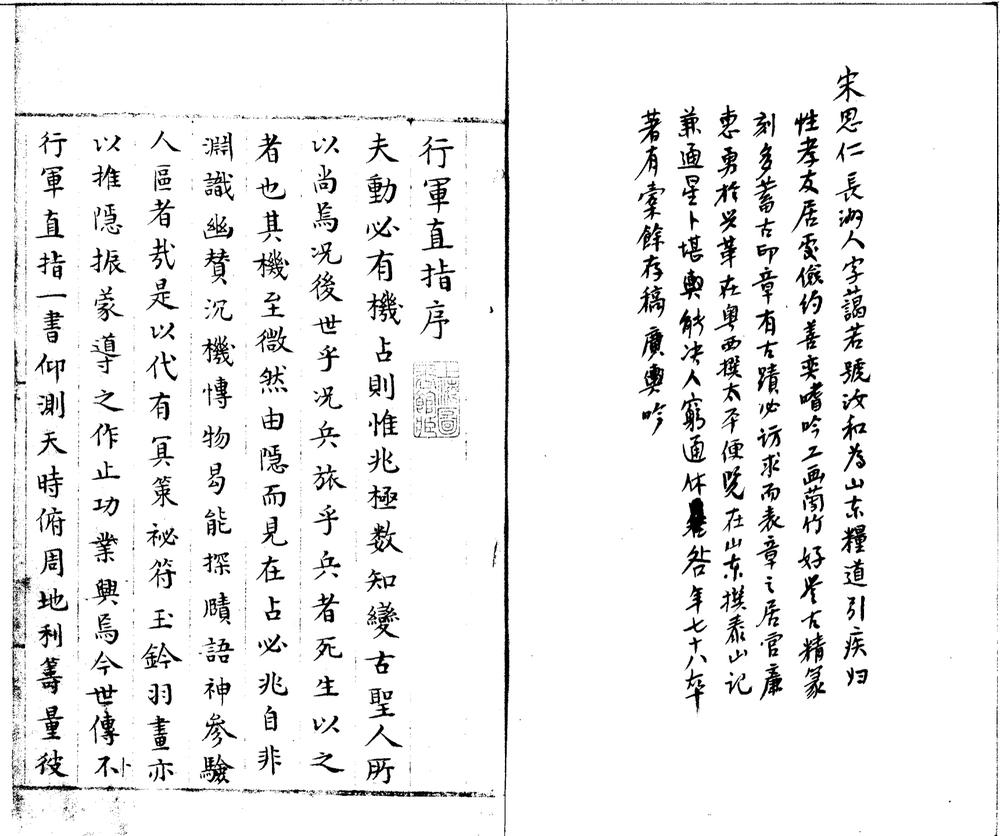 宋思仁長洲人字藹若號汝和為山东糧道引疾归
性孝友居處儉约善奕嗜吟工画蘭竹好学古精篆
刻多蓄古印章有古蹟必访求而表章之居官廉
惠勇於兴革在粤西撰太平便览在山东撰泰山记
兼通星卜堪輿能决人窮通休咎年七十八卒
著有槖餘存稿廣輿吟
行軍直指序
夫動必有機占則惟兆極数知變古聖人所
以尚焉况後世乎况兵旅乎兵者死生以之
者也其機至微然由隱而見在占必兆自非
淵識幽賛沉機愽物曷能探賾語神參驗
人區者㢤是以代有冥策祕符玉鈐羽畫亦
以推隱振蒙導之作止功業興焉今世傳不
行軍直指一書仰測天時俯周地利籌量彼